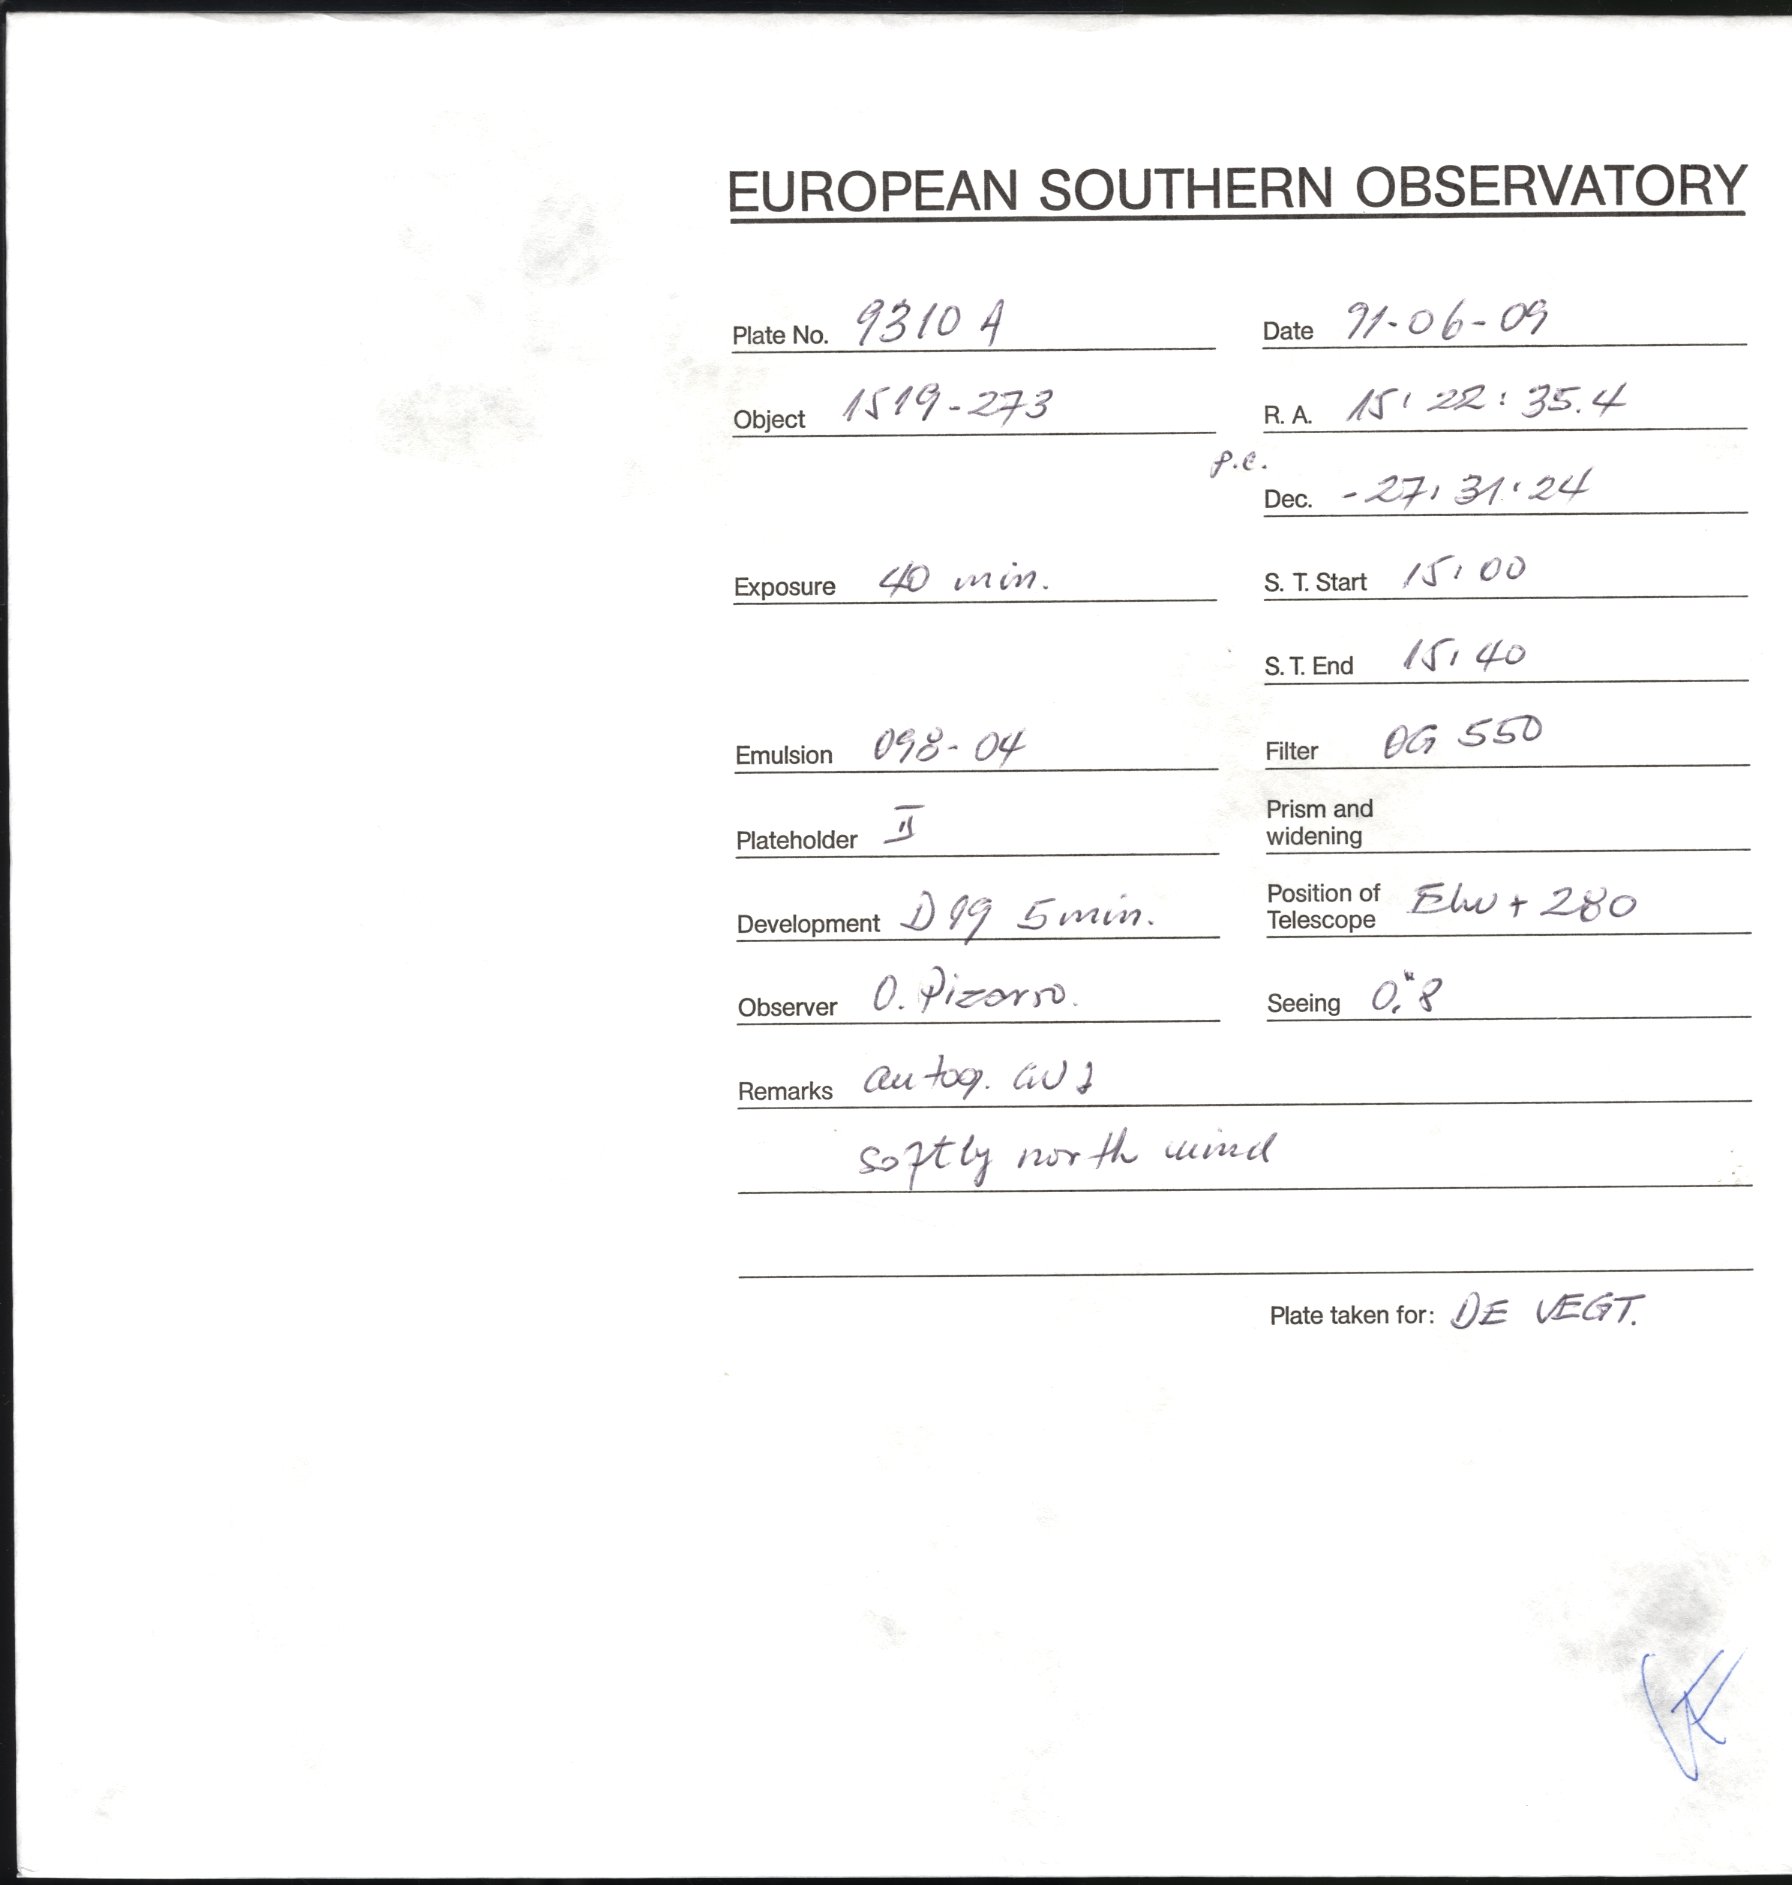 EUROPEAN SOUTHERN OBSERVATORY
Plate No. 9310 A
Date 91-06-09
Object 1519-273
R. A. 15: 22: 35.4
p.e.
Dec. -27: 31: 24
Exposure 40 min.
S. T. Start 15: 00
S. T. End 15: 40
Emulsion 098-04
Filter OG 550
Plateholder II
Prism and
widening
Development D 19 5 min.
Position of
Telescope EW + 280
Observer O. Pizarro.
Seeing 0."8
Remarks autog.
softly north wind
Plate taken for: DE VEGT.